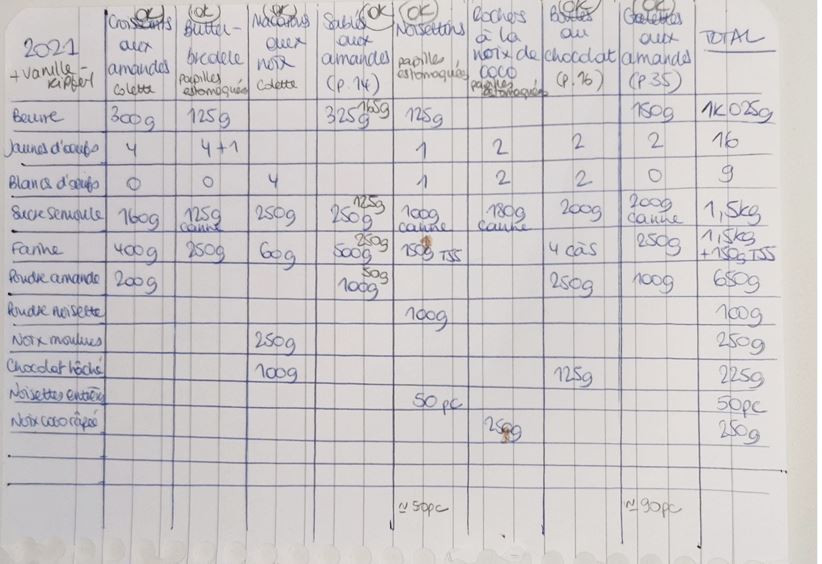 2021
+ Vanille-Kipferl
OK Croissants aux amandes Colette
OK Butter-bredele papilles estomaquées
OK Macarons aux noix Colette
OK Sablés aux amandes (p.14)
OK Noisettons papilles estomaquées
Rochers à la noix de coco papilles estomaquées
OK au chocolat (p.16)
OK Galettes aux amandes (p35)
TOTAL
Beurre 300g 125g 325g 165g 125g 150g 1K025g
Jaunes d'oeufs 4 4+1 1 2 2 2 16
Blancs d'oeufs 0 0 4 1 2 2 0 9
Sucre semoule 160g 125g canne 250g 250g 125g 100g canne 180g canne 200g 200g canne 1,5kg
Farine 400g 250g 60g 500g 250g 150g T55 4 càs 250g 1,5kg +150g T55
Poudre amande 200g 100g 50g 250g 100g 650g
Poudre noisette 100g 100g
Noix moulues 250g 250g
Chocolat hâché 100g 125g 225g
Noisettes entières 50pc 50pc
Noix coco râpée 250g 250g
≈50pc ≈90pc